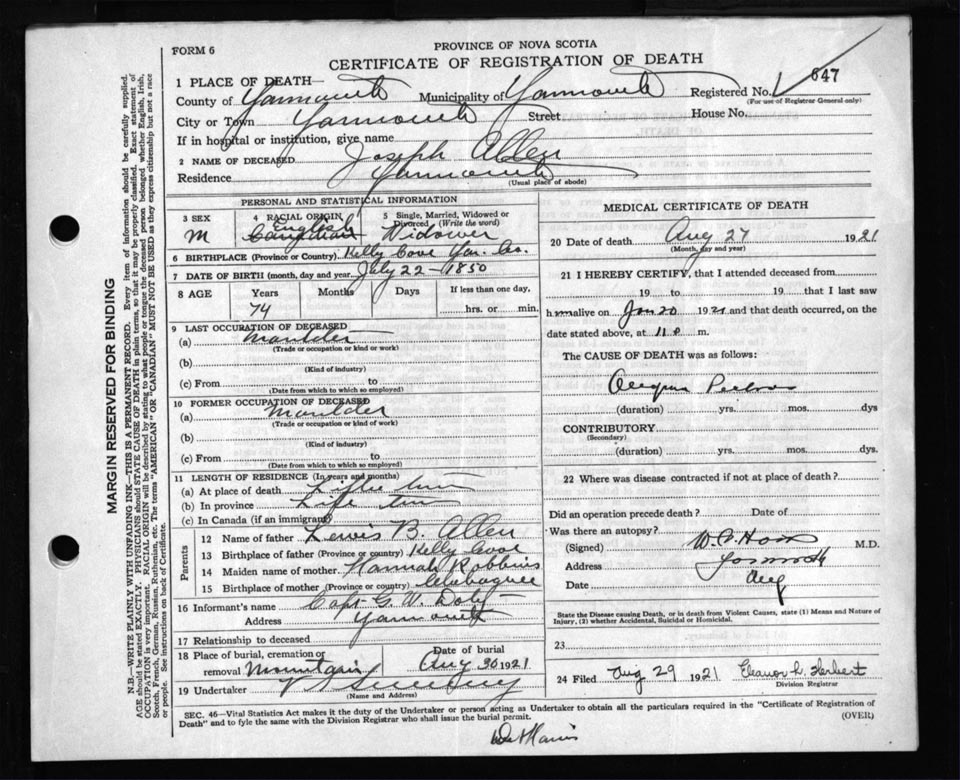 FORM 6
PROVINCE OF NOVA SCOTIA
CERTIFICATE OF REGISTRATION OF DEATH
647
1 PLACE OF DEATH—
County of Yarmouth Municipality of Yarmouth Registered No.
(For use of Registrar General only)
City or Town Yarmouth Street House No.
If in hospital or institution, give name
2 NAME OF DECEASED Joseph Allen
Residence Yarmouth
(Usual place of abode)
PERSONAL AND STATISTICAL INFORMATION
3 SEX M
4 RACIAL ORIGIN English Canadian
5 Single, Married, Widowed or Divorced (Write the word) Widower
6 BIRTHPLACE (Province or Country) Kelly Cove Yar. Co.
7 DATE OF BIRTH (month, day and year) July 22 - 1850
8 AGE Years Months Days If less than one day,
74 hrs. or min.
9 LAST OCCUPATION OF DECEASED
(a) Moulder
(Trade or occupation or kind or work)
(b)
(Kind of industry)
(c) From to
(Date from which to which so employed)
10 FORMER OCCUPATION OF DECEASED
(a) Moulder
(Trade or occupation or kind of work)
(b)
(Kind of industry)
(c) From to
(Date from which to which so employed)
11 LENGTH OF RESIDENCE (In years and months)
(a) At place of death Life time
(b) In province Life time
(c) In Canada (if an immigrant)
Parents
12 Name of father Lewis B. Allen
13 Birthplace of father (Province or country) Kelly Cove
14 Maiden name of mother Hannah Robbins
15 Birthplace of mother (Province or country) Chebogue
16 Informant's name Capt G. W.
Address Yarmouth
17 Relationship to deceased
18 Place of burial, cremation or removal Mountain
Date of burial Aug 30 1921
19 Undertaker V S Sweeny
(Name and Address)
MEDICAL CERTIFICATE OF DEATH
20 Date of death Aug 27 1921
(Month, day and year)
21 I HEREBY CERTIFY, that I attended deceased from
19 to 19 that I last saw
him alive on Jan 20 1921 and that death occurred, on the
date stated above, at 11 P m.
The CAUSE OF DEATH was as follows:
Angina Pectoris
(duration) yrs. mos. dys
CONTRIBUTORY
(Secondary)
(duration) yrs. mos. dys.
22 Where was disease contracted if not at place of death?
Did an operation precede death? Date of
Was there an autopsy?
(Signed) M.D.
Address Yarmouth
Date Aug
State the Disease causing Death, or in death from Violent Causes, state (1) Means and Nature of
Injury, (2) whether Accidental, Suicidal or Homicidal.
23
24 Filed Aug 29 1921 Eleanor L. Herbert
Division Registrar
SEC. 46—Vital Statistics Act makes it the duty of the Undertaker or person acting as Undertaker to obtain all the particulars required in the "Certificate of Registration of
Death" and to fyle the same with the Division Registrar who shall issue the burial permit. (OVER)
MARGIN RESERVED FOR BINDING
N.B.—WRITE PLAINLY WITH UNFADING INK—THIS IS A PERMANENT RECORD. Every item of information should be carefully supplied.
AGE should be stated EXACTLY. PHYSICIANS should STATE CAUSE OF DEATH in plain terms, so that it may be properly classified. Exact statement of
OCCUPATION is very important. RACIAL ORIGIN will be described by stating to what people or tongue the deceased person belonged whether English, Irish,
Scotch, French, German, Russian, Ruthenian, etc. The terms "AMERICAN" OR "CANADIAN" MUST NOT BE USED as they express citizenship but not a race
or people. See instructions on back of Certificate.